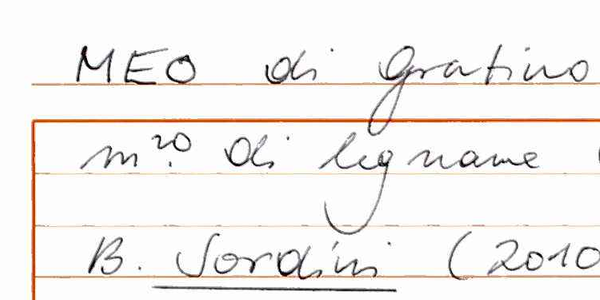 MEO di Gratino
m.ro di legname (
B. Sordini (2010